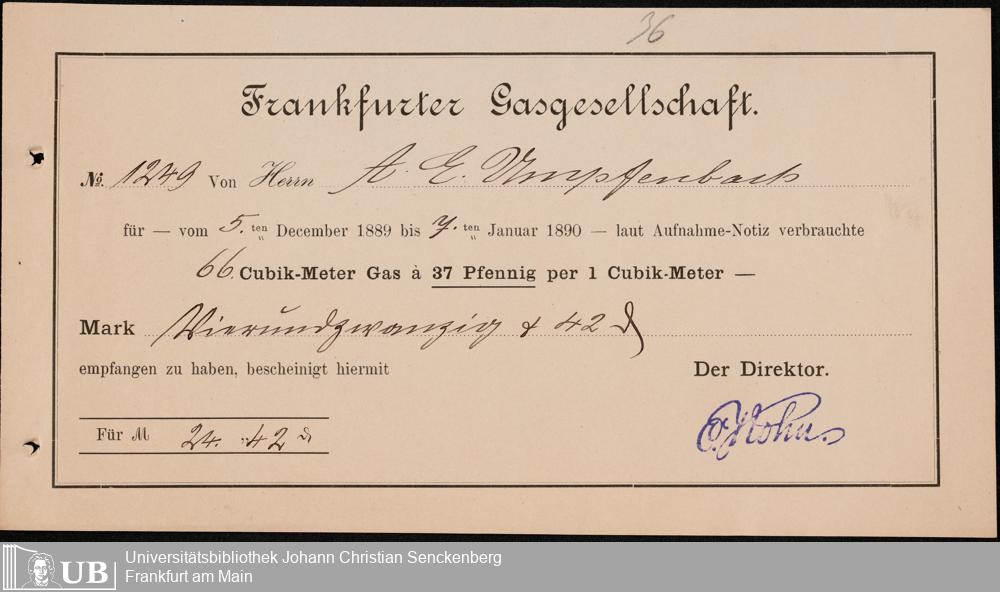 36
Frankfurter Gasgesellschaft.
No. 1249 Von Herrn A. E. Umpfenbach
für — vom 5. ten December 1889 bis 7. ten Januar 1890 — laut Aufnahme-Notiz verbrauchte
66. Cubik-Meter Gas à 37 Pfennig per 1 Cubik-Meter —
Mark Vierundzwanzig & 42 ₰
empfangen zu haben, bescheinigt hiermit
Der Direktor.
Für M 24. 42 ₰
UB
Universitätsbibliothek Johann Christian Senckenberg
Frankfurt am Main